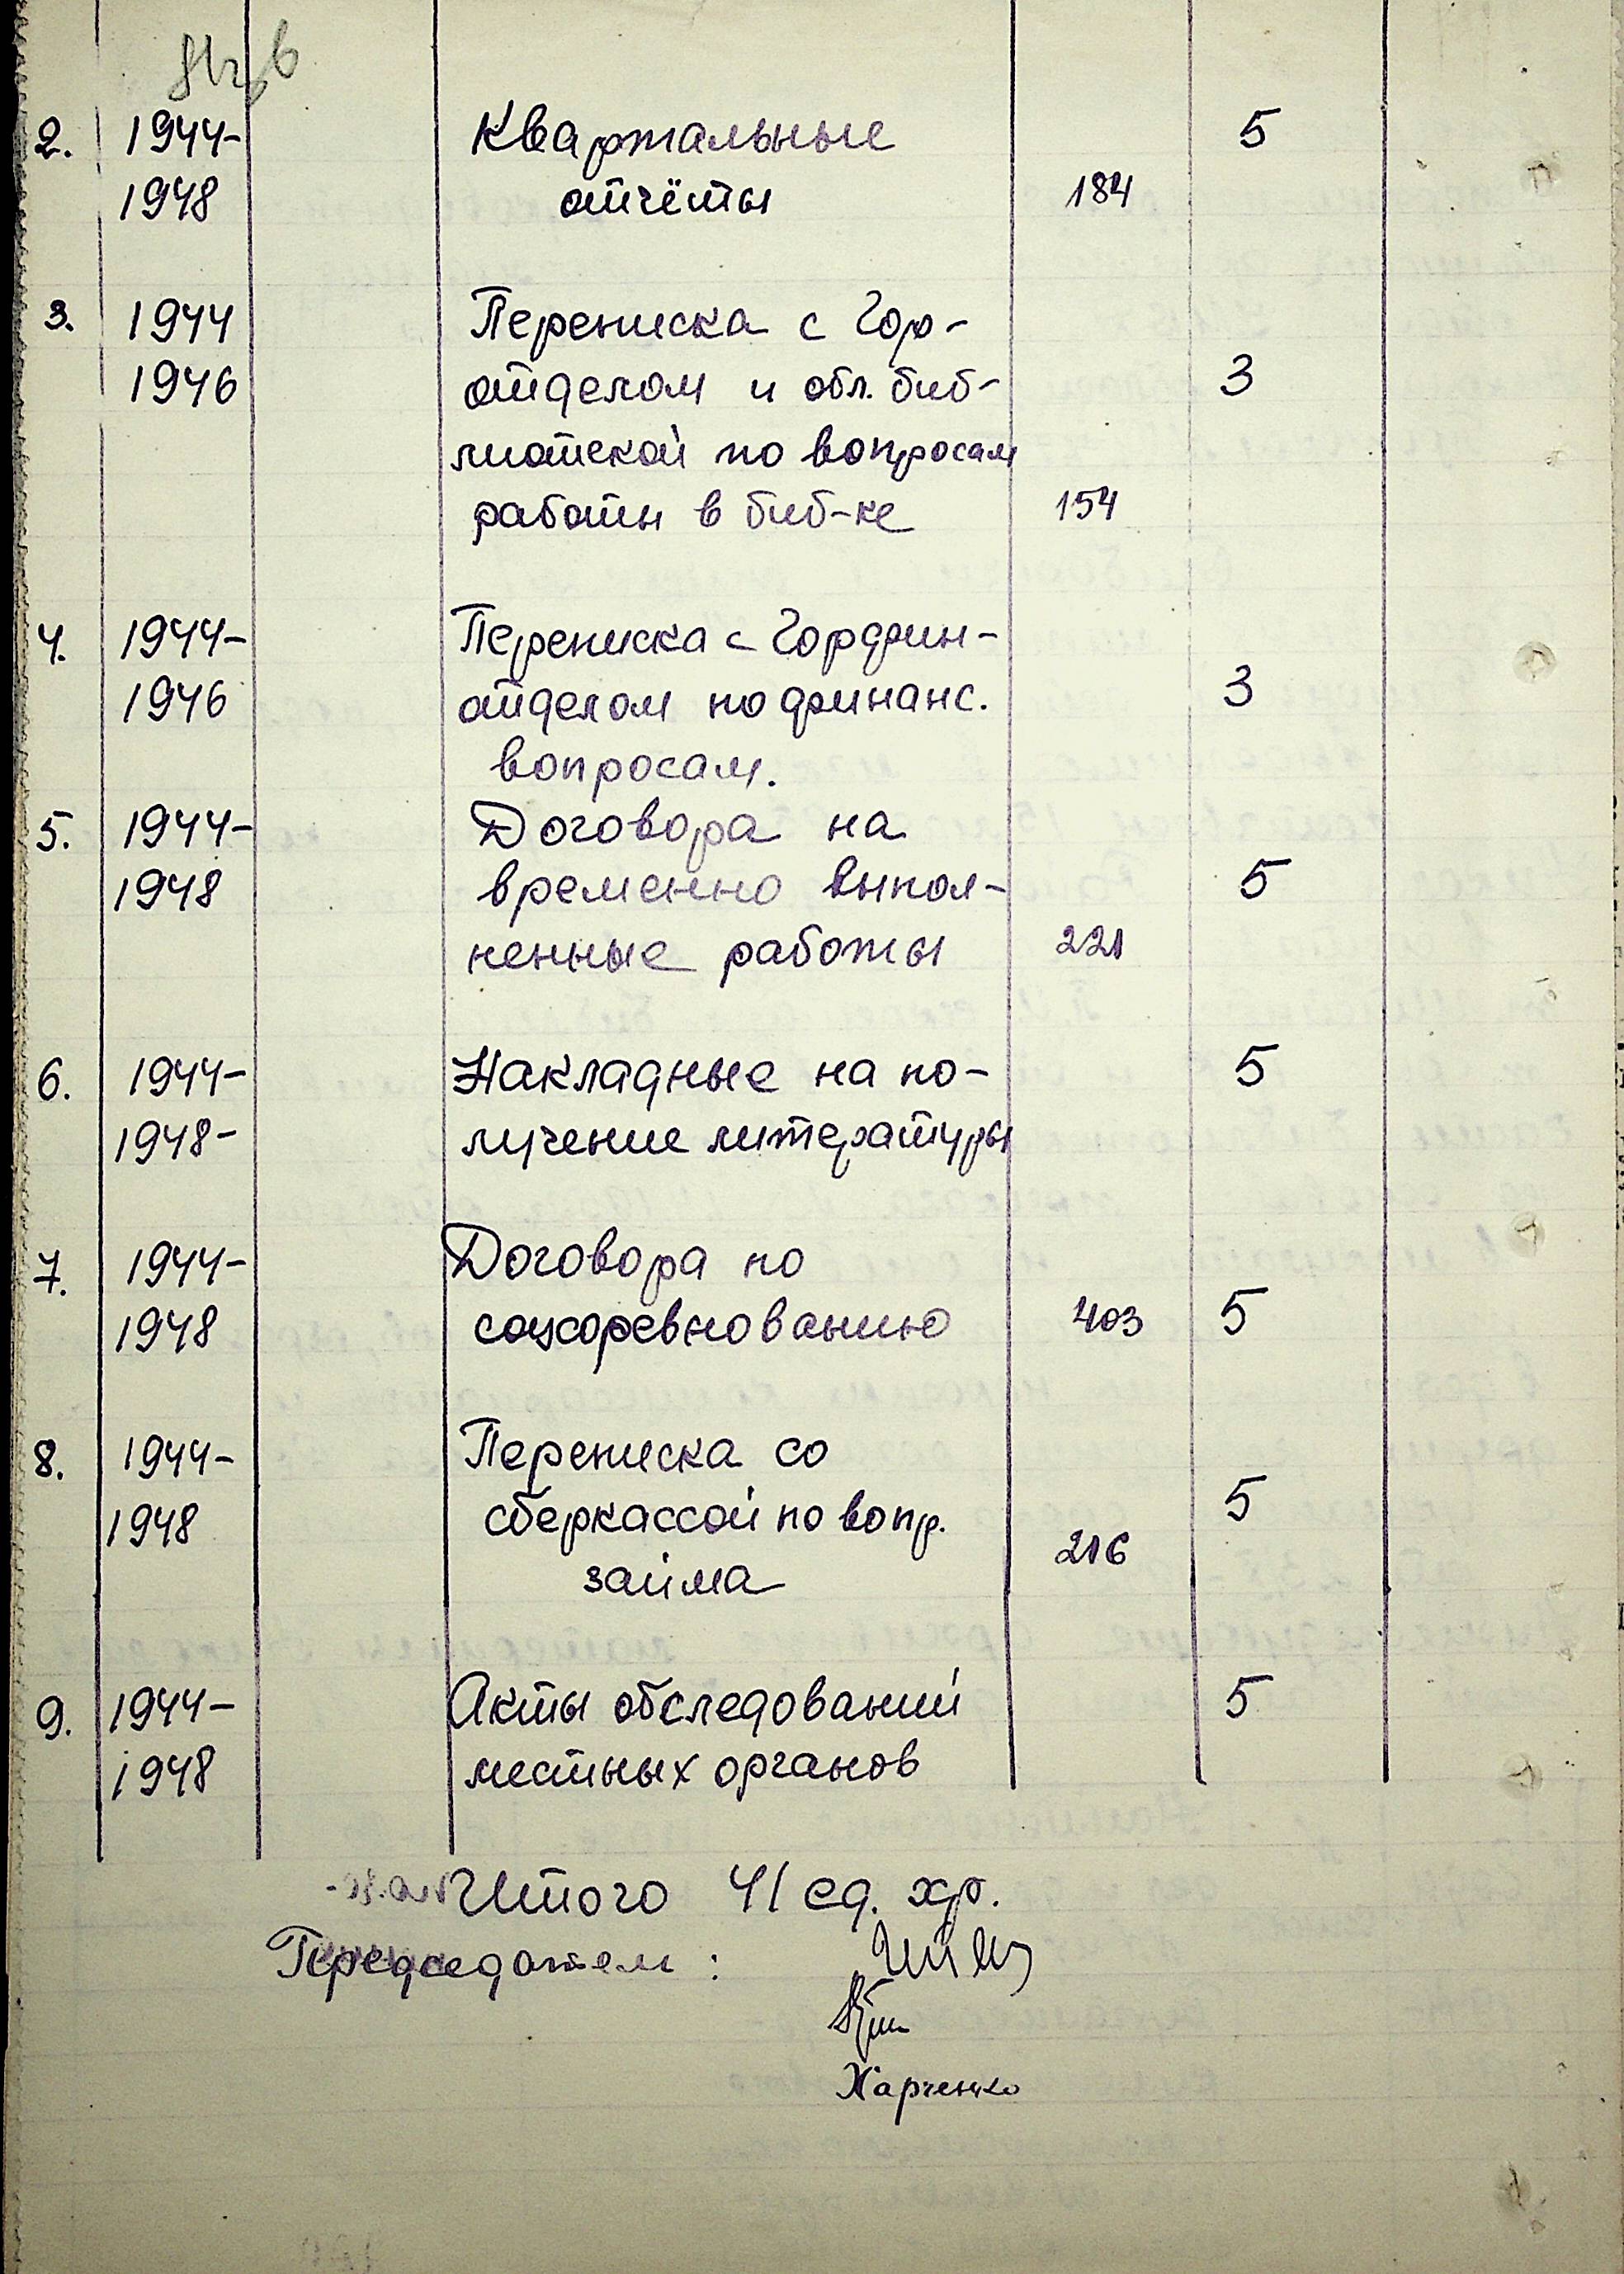 2. 1944- Квартальные 5
1948 отчёты 184
3. 1944 Переписка с Гор-
1946 отделом и обл. биб- 3
лиотекой по вопросам
работы в биб-ке 154
4. 1944- Переписка с Горфин-
1946 отделом по финанс. 3
вопросам.
5. 1944- Договора на
1948 временно выпол- 5
ненные работы 221
6. 1944- Накладные на по- 5
1948- лучение литературы
7. 1944- Договора по
1948 соцсоревнованию 403 5
8. 1944- Переписка со
1948 сберкассой по вопр. 5
займа 216
9. 1944- Акты обследований 5
1948 местных органов
Итого 41 ед. хр.
Председатель :
Харченко